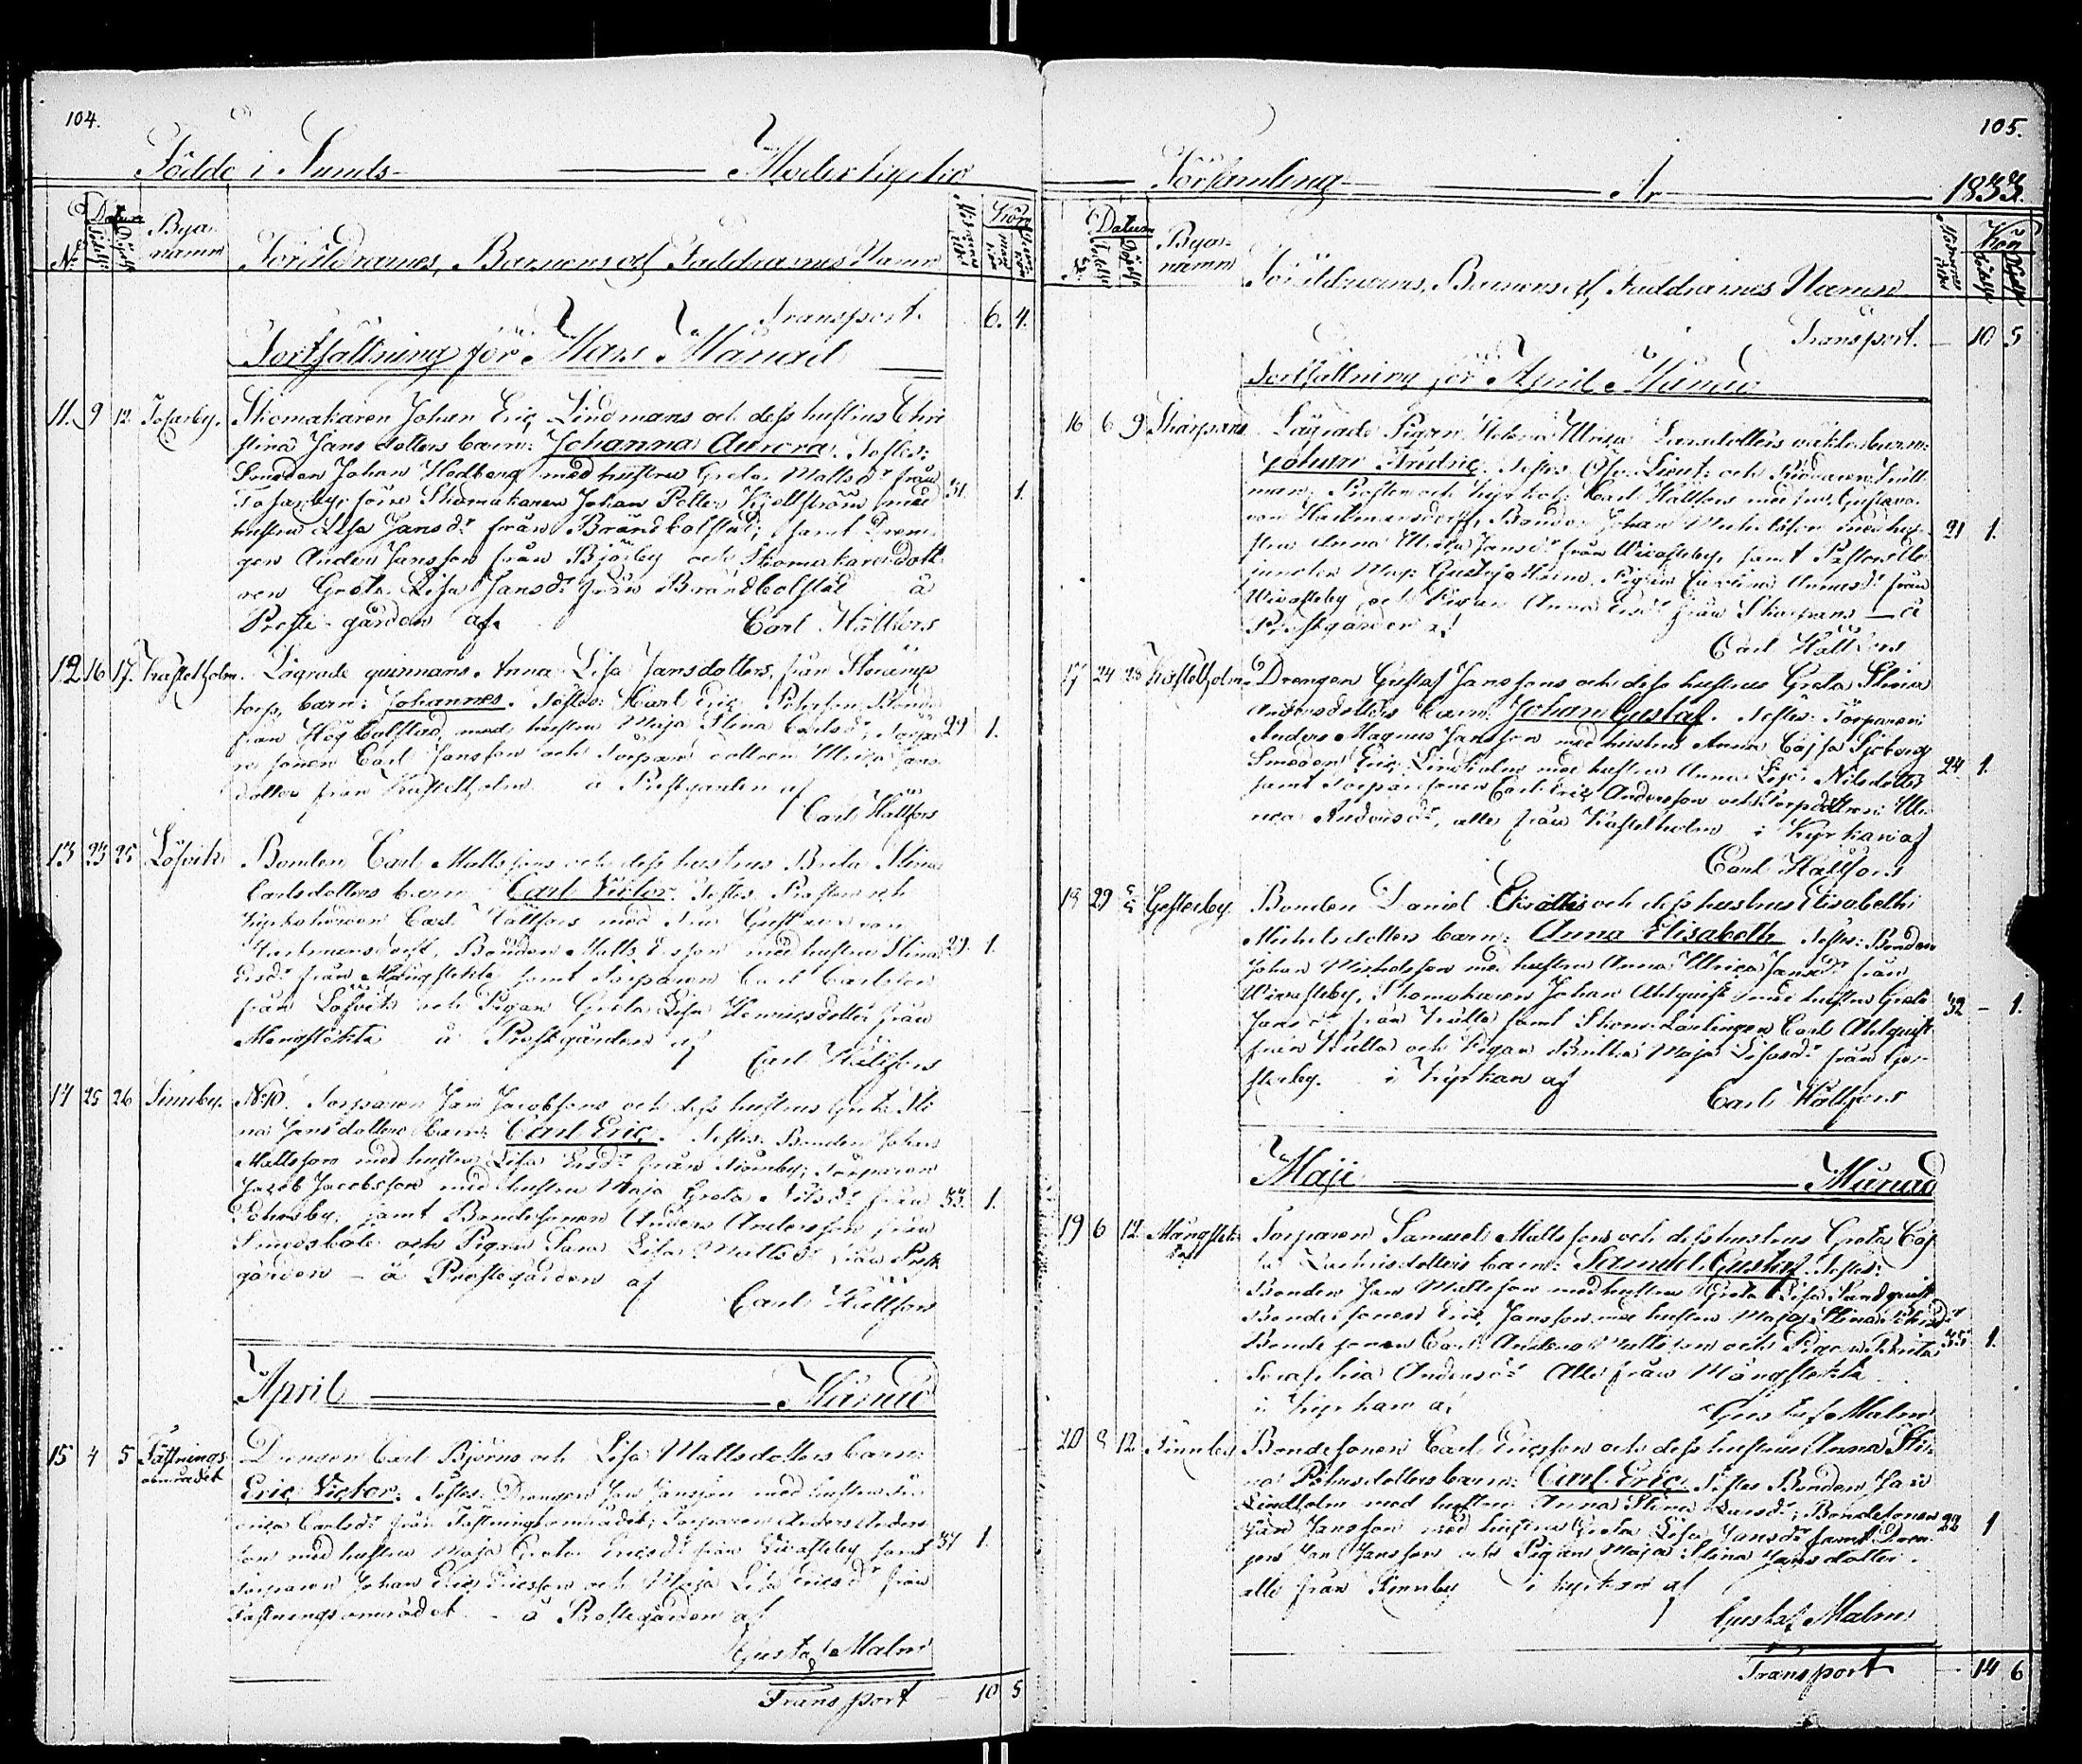 104.
Födde i Sunds Moderkyrko
No Datum Födelse Döpelse Bya-namn Föräldrarnes, Barnens och Faddrarnes Namn Kön
Transport. 6. 4.
Fortsättning för Mars Månad
11. 9 12 Tosarby. Skomakaren Johan Eric Lindmans och dess hustrus Chri
stina Jans dotters barn: Johanna Aurora. Testes:
Smeden Johan Hedberg med hustru Greta Mattsdr från
Tosarby, Skomakaren Johan Petter Kjellström med 31. 1.
hustru Lisa Jansdr från Brändbolstad; samt Dren-
gen Anders Jansson från Björby och Skomakaredott-
ren Greta Lisa Jansdr från Brändbolstad å
Preste-gården af Carl Hällfors
12 16 17. Kastelholm. Lägrade quinnans Anna Lisa Jansdotters, från
torp, barn: Johannes. Testes: Carl Eric Peterson, Bonde
från Högbolstad, med hustru Maja Stina Carlsdr, Torpa 29 1.
re sonen Carl Jansson och Torpare dottren Ulrica Jans
dotter från Kastelholm. å Prestgården af
Carl Hällfors
13 23 25 Löfvik Bonden Carl Mattssons och dess hustrus Brita Stina
Carlsdotters barn Carl Victor. Testes Prosten och
Kyrkoherden Carl Hällfors med Fru Gustava von
Hartmansdorff, Bonden Matts Ersson med hustru Stina 29. 1.
Ersdr från Mångstekta samt Torparen Carl Carlsson
från Löfvik och Pigan Greta Lisa Henricsdotter från
Mångstekta å Prestgården af
Carl Hällfors
14 25 26 Finnby. No 10. Torparen Jan Jacobssons och dess hustrus Greta Sti
na Jansdotters barn: Carl Eric. Testes: Bonden Johan
Mattsson med hustru Lisa Ersdr från Finnby; Torparen
Jacob Jacobsson med hustru Maja Greta Nilsdr från 33. 1.
samt Bondesonen Anders Andersson från
Smedsböle och Pigan Sara Lisa Mattsdr från Prest
gården - å Prestegården af
Carl Hällfors
April Månad
15 4 5 Fästnings Drengen Carl Björns och Lisa Mattsdotters barn:
området Eric Victor. Testes: Drengen Jan Jansson med hustru
Carlsdr från Fästningsområdet; Torparen Anders Anders
son med hustru Maja Greta Ericsdr från Wivasteby samt 37 1.
Torparen Johan Eric Ericsson och Maja Lisa Ericsdr från
Fästningsområdet - å Prestegården af
Gustaf Malm
Transport - 10 5
105.
Församling År 1833.
Datum Födelse Döpelse Bya-namn Föräldrarnes, Barnens och Faddrarnes Namn Kön
Transport. 10 5
Fortsättning för April Månad
16 6 9 Skarpans Lägrade Pigan Helena Ulrica Larsdotters oäkta barn:
Johan Fredric. Testes Lieut: och Riddaren
man; Prosten och Kyrkoh: Carl Hällfors med Fru Gustava
von Hartmansdorff, Bonden Johan Michelsson med hu-
stru Anna Ulrica Jansdr från Wivasteby, samt Pastors 21 1.
juncten Mag: Gustaf Malm, Pigan Carolina från
Wivasteby och Pigan Anna Ersdr från Skarpans — å
Prestgården af
Carl Hällfors
17 24 28 Kastelholm. Drengen Gustaf Janssons och dess hustrus Greta Stina
Andersdotters barn: Johan Gustaf. Testes: Torparen
Anders Magnus Jansson med hustru Anna Cajsa Sjöberg
Smeden Eric Lindholm med hustru Anna Lisa Nilsdotter 24 1.
samt Torparesonen Carl Eric Andersson och Torpdottren Ul-
rica Andersdr, alla från Kastelholm i Kyrkan af
Carl Hällfors
18 29 Gesterby. Bonden Daniel och dess hustrus Elisabeth
Michelsdotters barn: Anna Elisabeth. Testes: Bonden
Johan Michelsson med hustru Anna Ulrica Jansdr från
Wivasteby, Skomakaren Johan Ahlquist med hustru Greta 32 - 1.
Jansdr från Kulla samt Skom: Lärlingen Carl Ahlquist
från Kulla och Pigan Maja från Ge-
sterby. i Kyrkan af
Carl Hällfors
Maji Månad
19 6 12. Mångstek Torparen Samuel Mattssons och dess hustrus Greta Caj
ta sa Zachrisdotters barn: Samuel Gustaf. Testes:
Bonden Jan Mattsson med hustru Greta Lisa Sandquist
Bonde sonen Eric Jansson med hustru Maja Stina Ersdr
Bonde sonen Carl Anders Mattsson och Pigan Brita 35 1.
Serafina Andersdr Alla från Mångstekta
i Kyrkan af Gustaf Malm
20 8 12. Finnby Bondesonen Carl Ericsson och dess hustrus Anna Sti-
na dotters barn: Carl Eric. Testes Bonden Jan
Lindholm med hustru Anna Stina Larsdr, Bondesonen
Jan Jansson med hustru Greta Lisa Jansdr samt Dren- 22 1
gen Jan Jansson och Pigan Maja Stina Jansdotter.
alla från Finnby i Kyrkan af
Gustaf Malm
Transport - 14 6